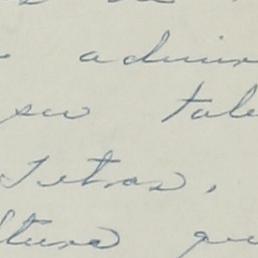 admir
su tale
Letras,
tura que